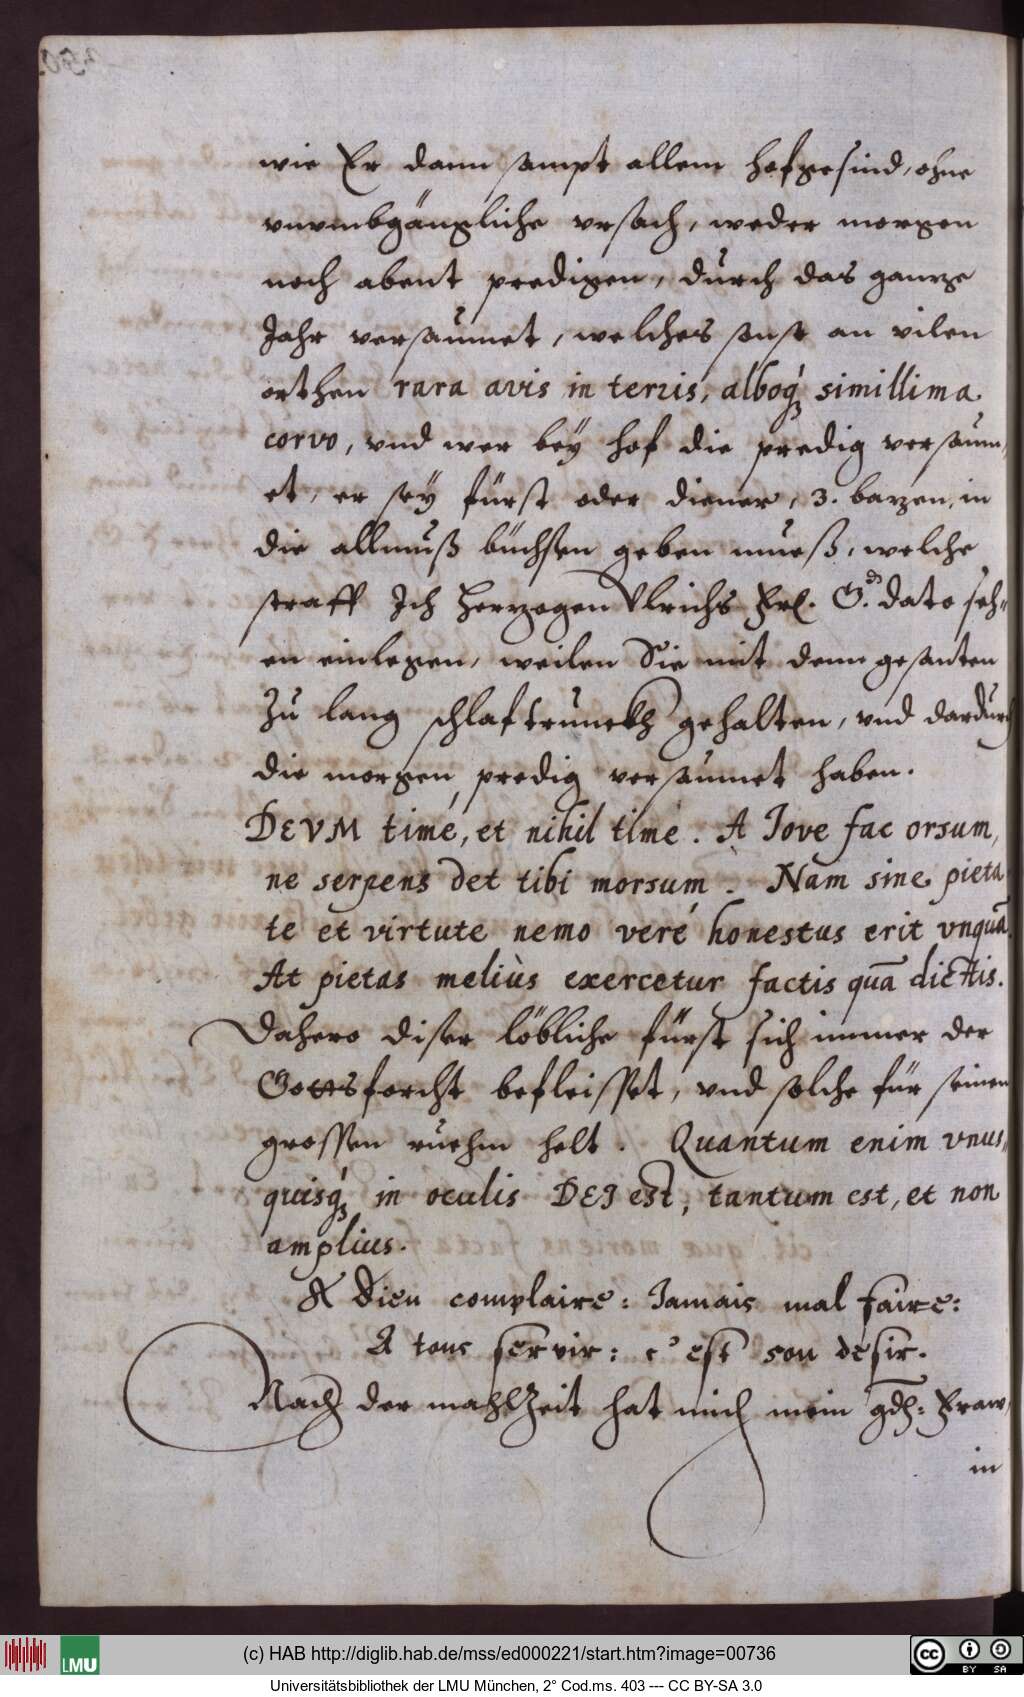 wie Er dann sampt allem hofgesind, ohne
vnvmbgängliche vrsach, weder morgen
noch abent predigen, durch das gantze
Jahr versaumet, welches sonst an vilen
orthen rara avis in terris, alboq́; simillima
corvo, vnd wer beÿ hof die predig versaum,
et, er seÿ fürst oder diener, 3. batzen, in
die allmuß büchsen geben mueß, welche
straff Ich Herzogen Vlrichs Frl. G.dn dato seh„
en einlegen, weilen Sie mit denn gesanten
Zu lang schlaftrunckh gehalten, vnd dardurch
die morgen predig versaumet haben.
DEVM timé, et nihil timé. A Jove fac orsum,
ne serpens det tibi morsum. Nam sine pieta
te et virtute nemo veré honestus erit vnquā.
At pietas meliùs exercetur factis quā dictis.
Dahero diser löbliche fürst sich immer der
Gottsforcht befleisset, vnd solche für seinen
grossen ruehm helt. Quantum enim vnus„
quisq́; in oculis DEI est, tantum est, et non
amplius.
A Dieu complaire: Jamais mal faire:
A tous servir: c'est son désir.
Nach der mahlZeit hat mich mein gdh: Fraw,
in
(c) HAB http://diglib.hab.de/mss/ed000221/start.htm?image=00736
LMU
cc BY SA
Universitätsbibliothek der LMU München, 2° Cod.ms. 403 --- CC BY-SA 3.0